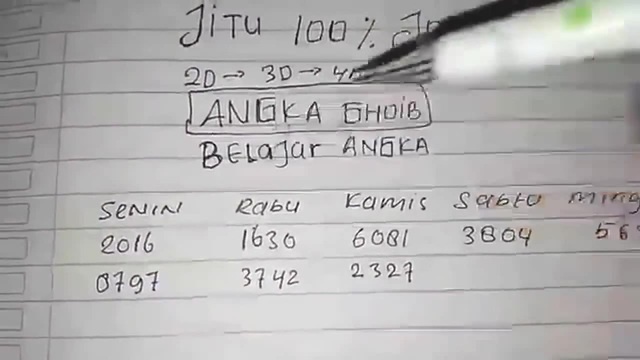 JiTU 100%
2D → 3D →
ANGKA GHOIB
BELajar ANGKA
SENIN Rabu Kamis Sabtu
2016 1630 6081 3804
0797 3742 2327